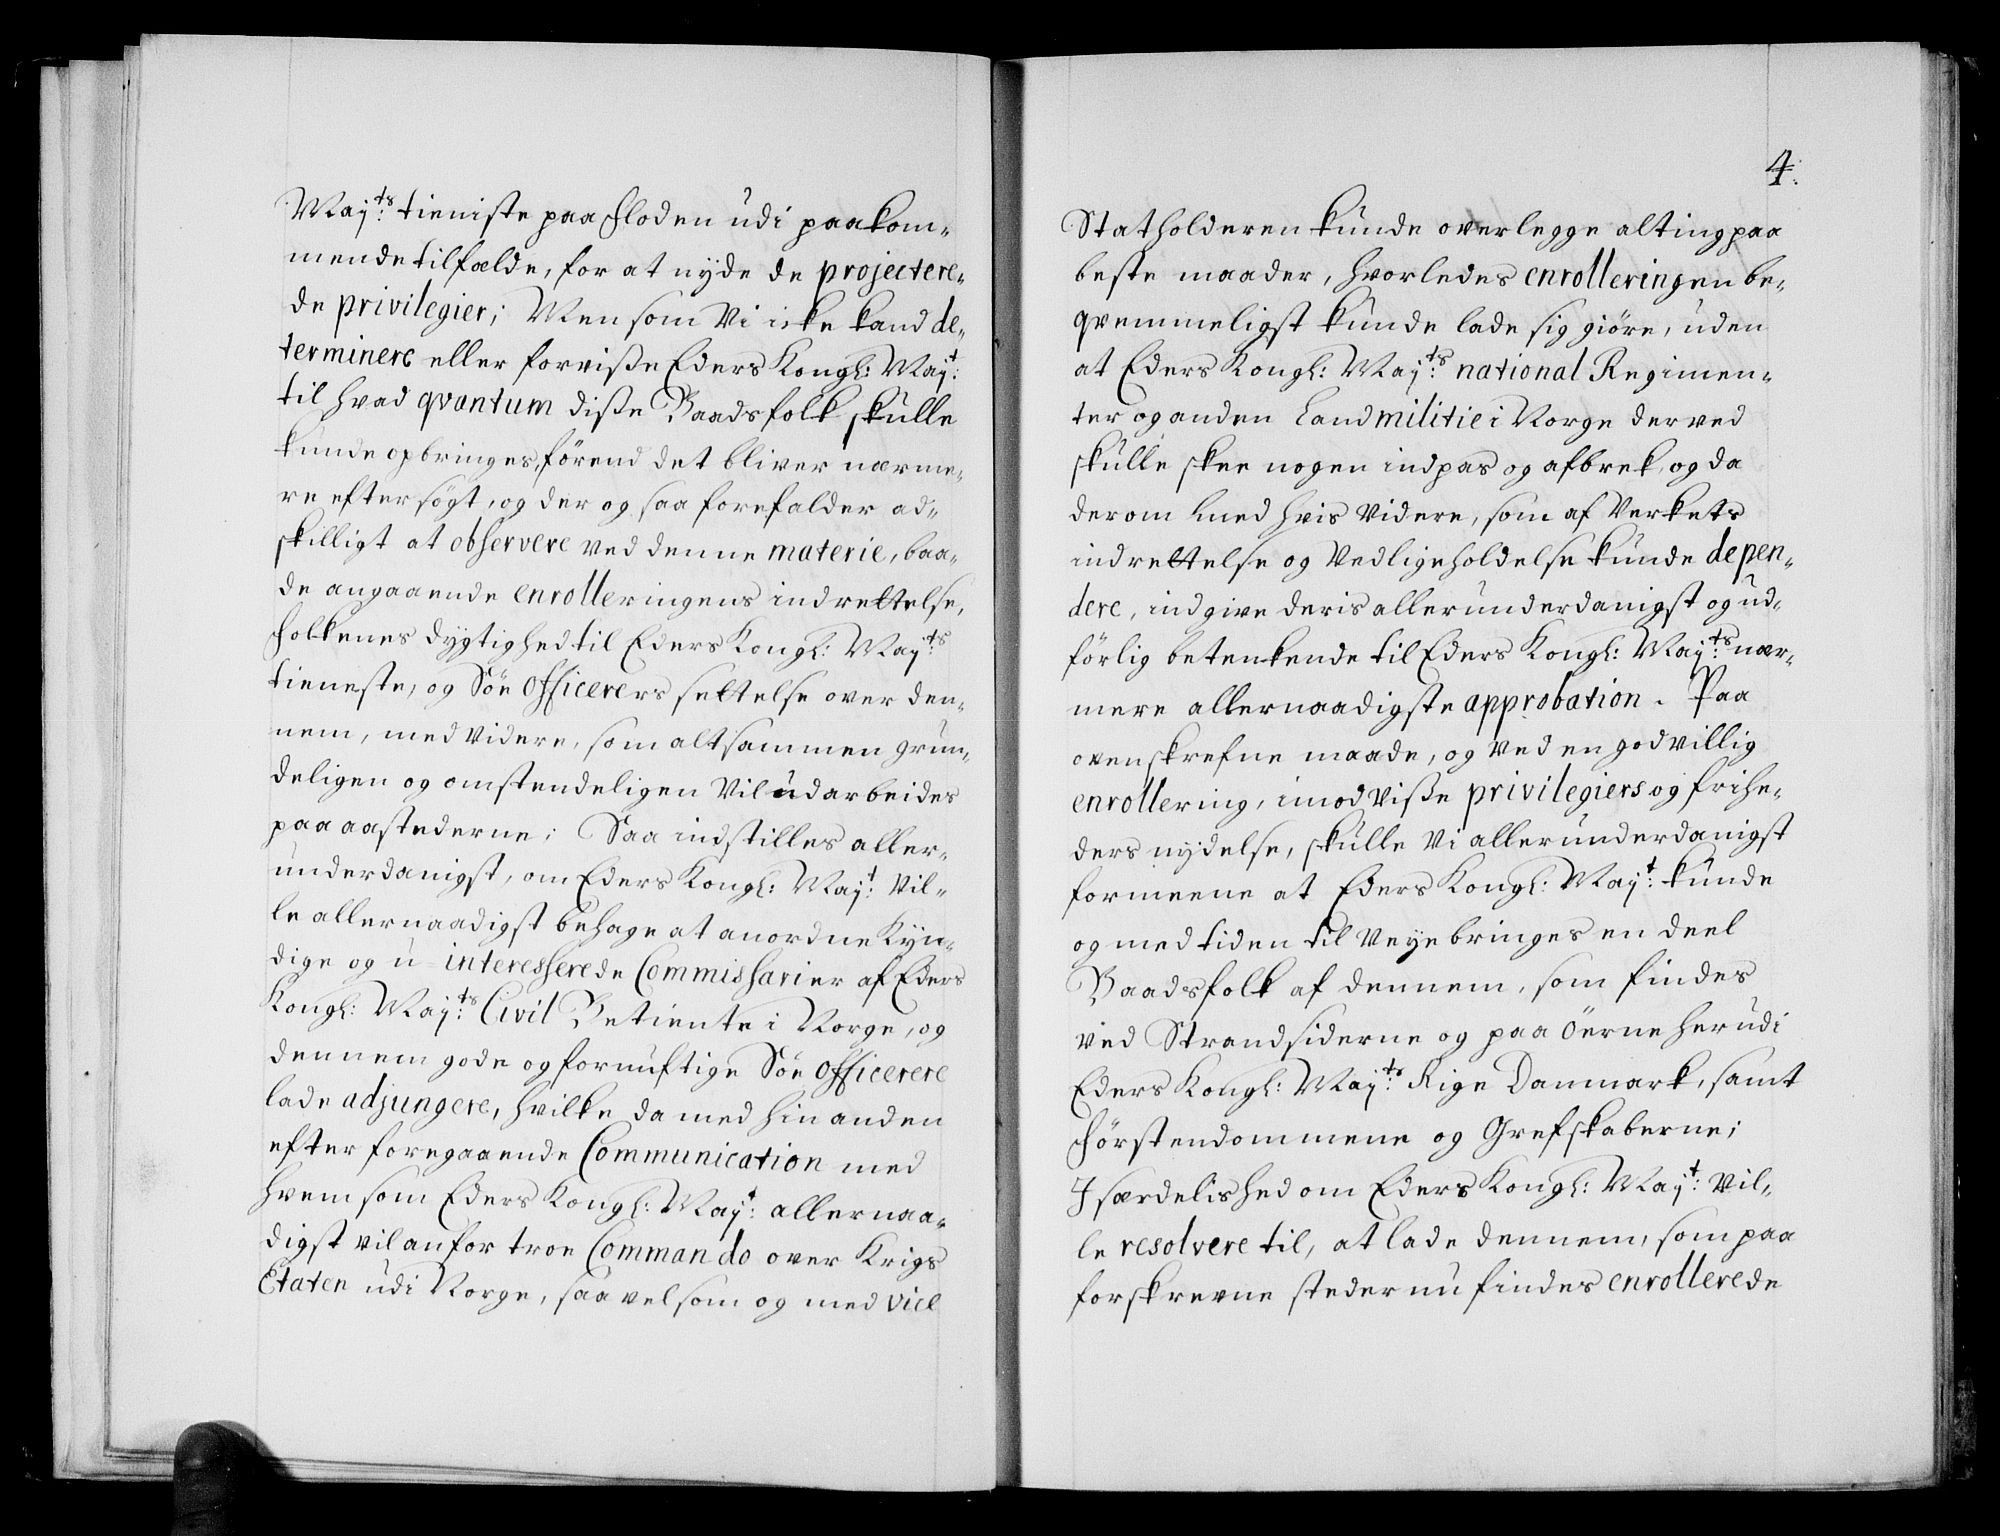 Maÿ:ts tieniste paa Floden udi paakom-
mende tilfælde, for at nyde de projectere-
de privilegier; Men som Vi icke kand de-
terminere eller forvisße Eders Kongl: Maÿ:t
til hvad qvantum disße Baadsfolk skulle
kunde opbringes, førend det bliver nærme-
re eftersøgt, og der og saa forefalder ad-
skilligt at observere ved denne materie, baa-
de angaaende enrolleringens indrettelse,
Folkenes dygtighed til Eders Kongl: Maÿ:ts
tieneste, og Söe Officerers settelse over den-
nem, med videre, som altsammen grun-
deligen og omstendeligen Vil udarbeides
paa aastederne; Saa indstilles aller-
underdanigst, om Eders Kongl: Maÿ:t Vil-
le allernaadigst behage at anordne Kÿn-
dige og u-interesserede Commissarier af Eders
Kongl: Maÿ:ts Civil Betiente i Norge, og
dennem gode og fornuftige Söe Officerere
lade adjungere, hvilke da med hinanden
efter foregaaende Communication med
hvem som Eders Kongl: Maÿ:t allernaa-
digst vil anfortroe Commando over Krigs
Etaten udi Norge, saavelsom og med Vice
4.
Statholderen kunde overlegge alting paa
beste maader, hvorledes enrolleringen be-
qvemmeligst kunde lade sig giöre, uden
at Eders Kongl: Maÿ:ts national Regimen-
ter og anden Landmilitie i Norge derved
skulle skee nogen indpas og afbrek, og da
derom med hvis videre, som af Verkets
indrettelse og Vedligeholdelse kunde depen-
dere, indgive deris allerunderdanigst og ud-
förlig betenkende til Eders Kongl: Maÿ:ts nær-
mere allernaadigste approbation. Paa
ovenskrefne maade, og ved en godvillig
enrollering, imod Visße privilegiers og frihe-
ders nÿdelse, skulle Vi allerunderdanigst
formeene at Eders Kongl: Maÿ:t kunde
og med tiden til Veÿe bringes en deel
Baadsfolk af dennem, som findes
ved Strandsiderne og paa Öerne her udi
Eders Kongl: Maÿ:ts Rige Danmark, samt
Förstendommene og Grefskaberne;
Isærdelished om Eders Kongl: Maÿ:t Vil-
le resolvere til, at lade dennem, som paa
forskrevne steder nu findes enrollerede